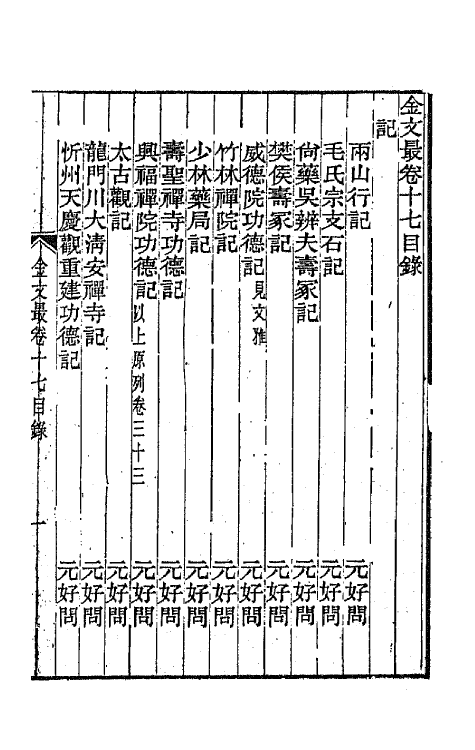 金文最卷十七目錄
記
兩山行記 元好問
毛氏宗支石記 元好問
尙藥吳辨夫壽冢記 元好問
樊侯壽冢記 元好問
威德院功德記見文雅 元好問
竹林禪院記 元好問
少林藥局記 元好問
壽聖禪寺功德記 元好問
興福禪院功德記以上原列卷三十三 元好問
太古觀記 元好問
龍門川大清安禪寺記 元好問
忻州天慶觀重建功德記 元好問
金文最卷十七目錄 一